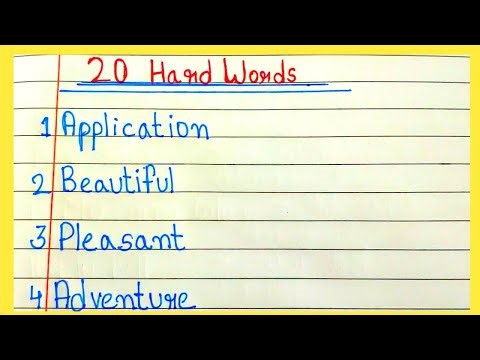 20 Hard Words
1 Application
2 Beautiful
3 Pleasant
4 Adventure